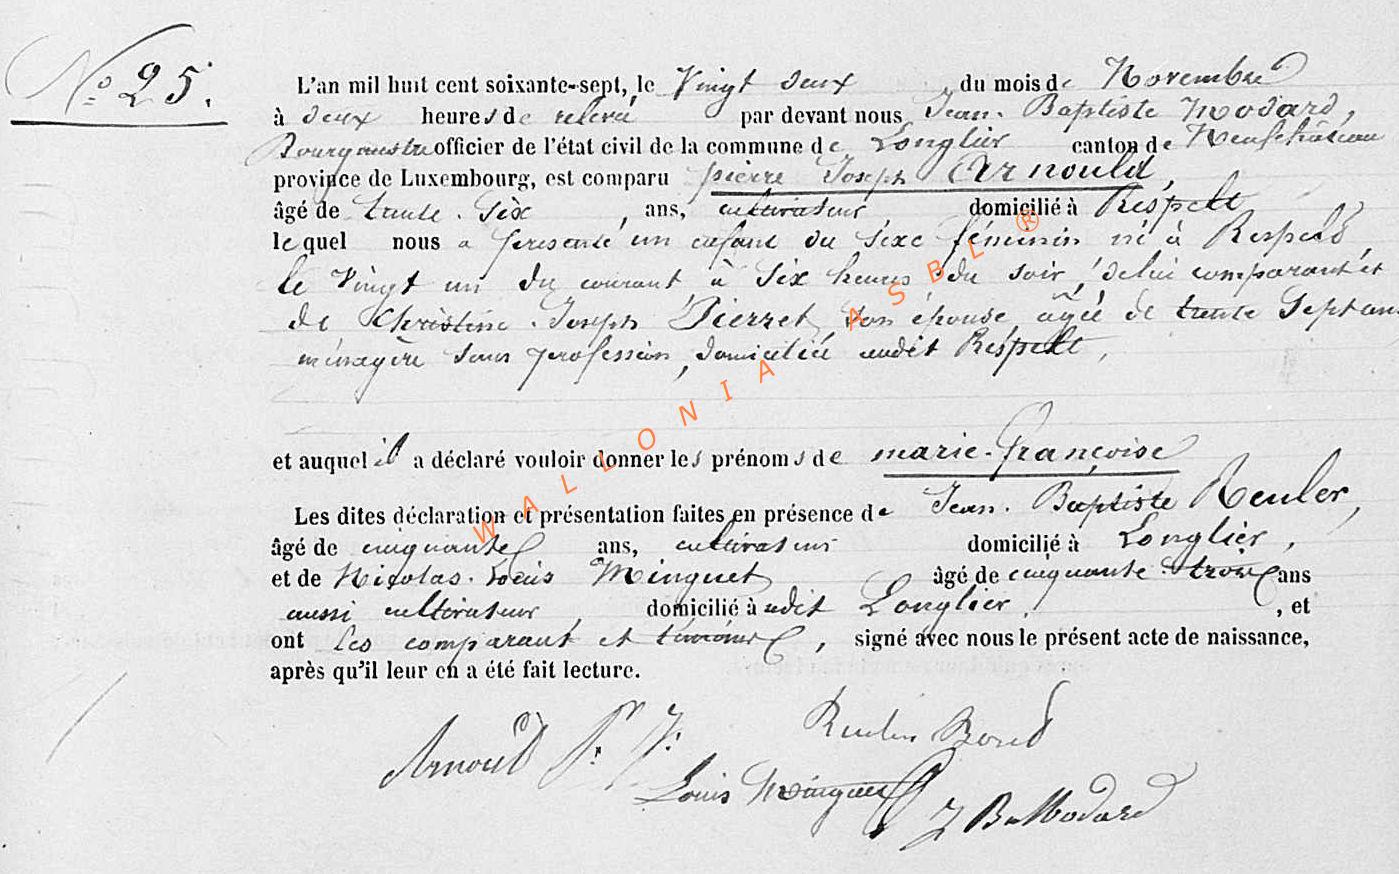 N° 25.
L'an mil huit cent soixante-sept, le Vingt deux du mois de Novembre
à deux heures de relevé par devant nous Jean-Baptiste Modard,
Bourgmestre officier de l'état civil de la commune de Longlier canton de Neufchâteau
province de Luxembourg, est comparu pierre Joseph Arnould,
âgé de trente-Six, ans, cultivateur, domicilié à Respelt
lequel nous a presenté un enfant du sexe féminin né à Respelt,
le Vingt un du courant à Six heures du soir, de lui comparant et
de Christine-Joseph Pierret, son épouse, âgée de trente Sept ans
ménagère sans profession, domiciliée audit Respelt,
et auquel il a déclaré vouloir donner les prénoms de marie-Françoise
Les dites déclaration et présentation faites en présence de Jean-Baptiste Reuler,
âgé de cinquante ans, cultivateur domicilié à Longlier,
et de Nicolas-Louis Minguet âgé de cinquante-trois ans
aussi cultivateur, domicilié à udit Longlier, et
ont les comparant et témoins, signé avec nous le présent acte de naissance,
après qu'il leur en a été fait lecture.
Arnould P. J.
Louis Minguet
J B Modard
WALLONIA ASBL ®